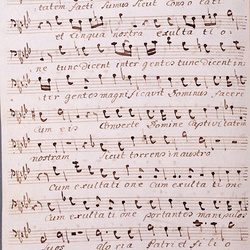 tatem facti Sumus Sicut Conso lati
et lingua nostra exulta ti o
ne tunc dicent inter gentes tunc dicent in
ter gentes magnificavit Dominus facere
Cum eis Converte Domine Captivitatem
nostram Sicut torrens in austro
Cum exultati one Cum exultati one
Cum exultati one portantes manipulos
suos glo ria Patri et fili o